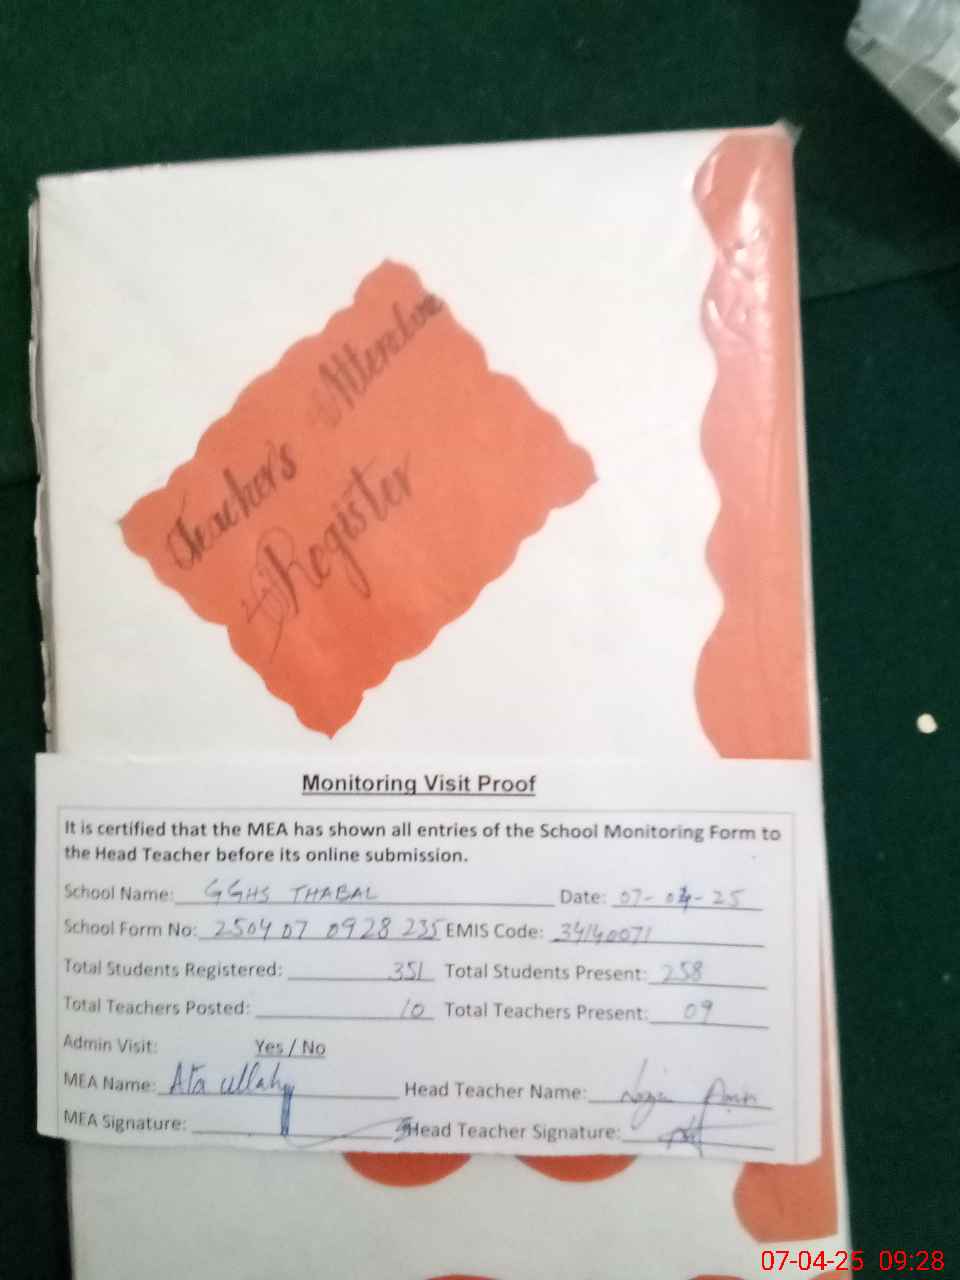 Teacher's Attendance
Register
Monitoring Visit Proof
It is certified that the MEA has shown all entries of the School Monitoring Form to
the Head Teacher before its online submission.
School Name: GGHS THABAL Date: 07-04-25
School Form No: 250407 0928 235 EMIS Code: 34140071
Total Students Registered: 351 Total Students Present: 258
Total Teachers Posted: 10 Total Teachers Present: 09
Admin Visit: Yes / No
MEA Name: Ata ullah Head Teacher Name:
MEA Signature: Head Teacher Signature:
07-04-25 09:28